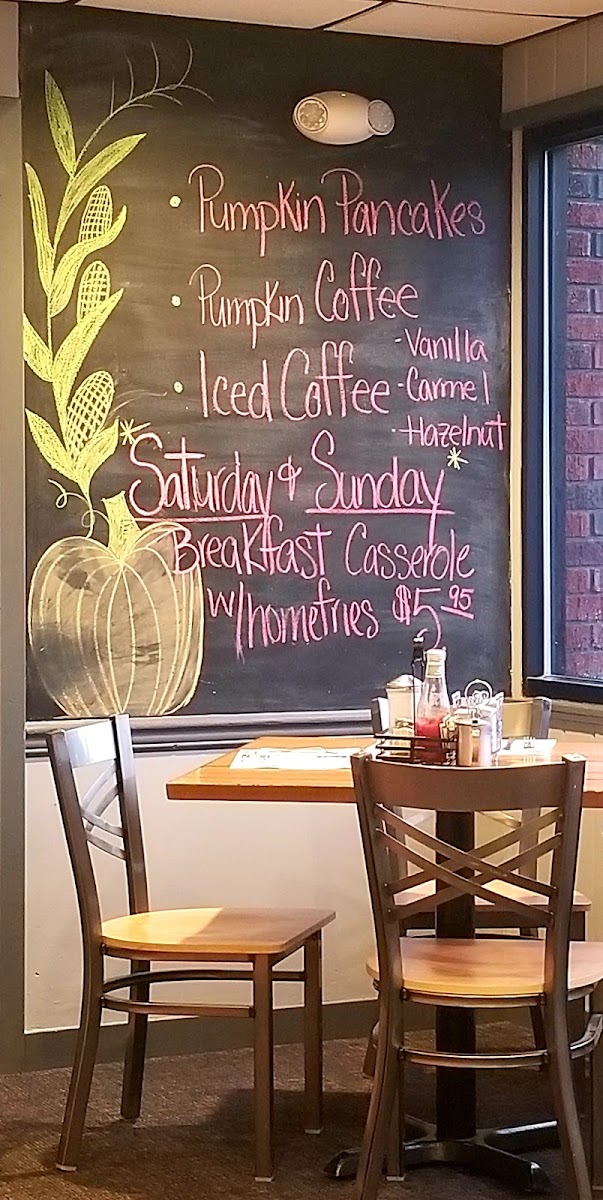 • Pumpkin Pancakes
• Pumpkin Coffee
• Iced Coffee
- Vanilla
- Carmel
- Hazelnut
*Saturday & Sunday*
Breakfast Casserole
w/homefries $5.95